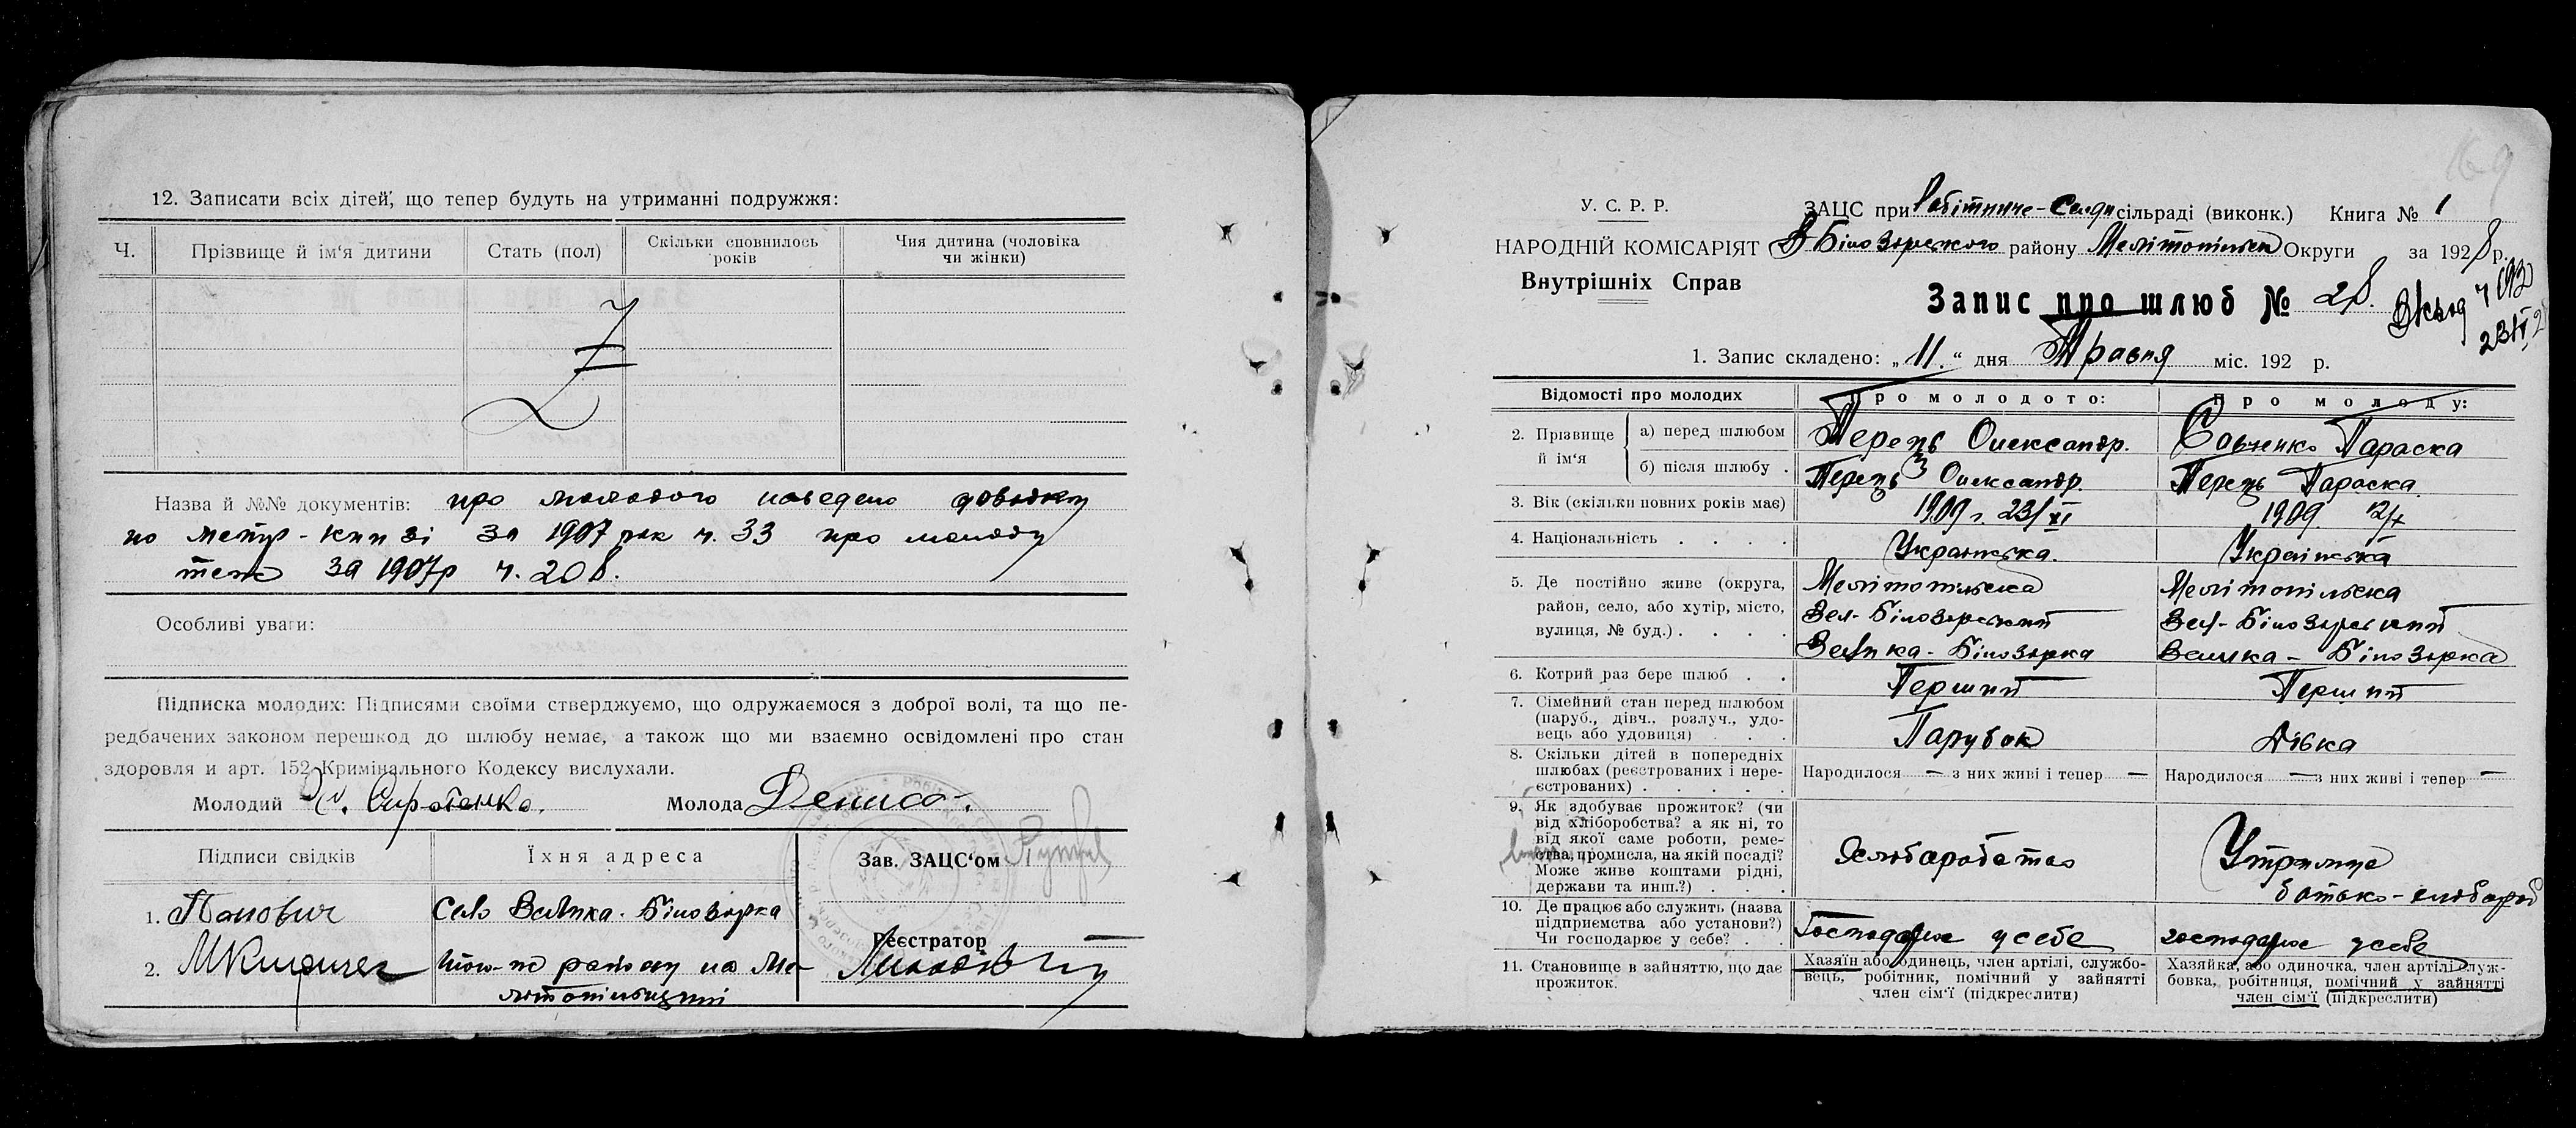 12. Записати всіх дітей, що тепер будуть на утриманні подружжя:
Ч.
Прізвище й ім'я дитини
Стать (пол)
Скільки сповнилось
років
Чия дитина (чоловіка
чи жінки)
Назва й №№ документів: про молодого наведено довідку
по метр-книзі за 1907 рок ч. 33 про молоду
теж за 1907р ч. 208.
Особливі уваги:
Підписка молодих: Підписями своїми стверджуємо, що одружаємося з доброї волі, та що пе-
редбачених законом перешкод до шлюбу немає, а також що ми взаємно освідомлені про стан
здоровля и арт. 152 Кримінального Кодексу вислухали.
Молодий Сиротенко.
Молода
Підписи свідків
Їхня адреса
Зав. ЗАЦС'ом
1. Панович
Село Велика-Білозірка
2.
Реєстратор
69
У. С. Р. Р.
НАРОДНІЙ КОМІСАРІЯТ
Внутрішніх Справ
ЗАЦС при Робітниче-Селян сільраді (виконк.) Книга № 1
В Білозірського району Мелітопільск Округи за 1928 р.
Запис про шлюб № 28.
1. Запис складено: „11." дня Травня міс. 192 р.
Відомості про молодих
Про молодого:
Про молоду:
2. Прізвище
й ім'я
а) перед шлюбом
Перець Олександр.
Савченко Параска
б) після шлюбу
Перець Олександр.
Перець Параска.
3. Вік (скільки повних років має)
1909 г. 23/XI
1909
4. Національність
Українська.
Українська
5. Де постійно живе (округа,
район, село, або хутір, місто,
вулиця, № буд.)
Мелітопільска
Вел-Білозірський
Велика-Білозірка
Мелітопільска
Вел-Білозірський
Велика-Білозірка
6. Котрий раз бере шлюб
Перший
Перший
7. Сімейний стан перед шлюбом
(паруб., дівч., розлуч., удо-
вець або удовиця)
Парубок
Дівка
8. Скільки дітей в попередніх
шлюбах (реєстрованих і нере-
єстрованих)
Народилося — з них живі і тепер —
Народилося — з них живі і тепер —
9. Як здобуває прожиток? (чи
від хліборобства? а як ні, то
від якої саме роботи, реме-
ства, промисла, на якій посаді?
Може живе коштами рідні,
держави та инш.?)
Утримує
10. Де працює або служить (назва
підприємства або установи?)
Чи господарює у себе?
Господарює у себе
господарює у себе
11. Становище в зайняттю, що дає
прожиток.
Хазяїн або одинець, член артілі, службо-
вець, робітник, помічний у зайнятті
член сім'ї (підкреслити)
Хазяйка, або одиночка, член артілі служ-
бовка, робітниця, помічний у зайнятті
член сім'ї (підкреслити)